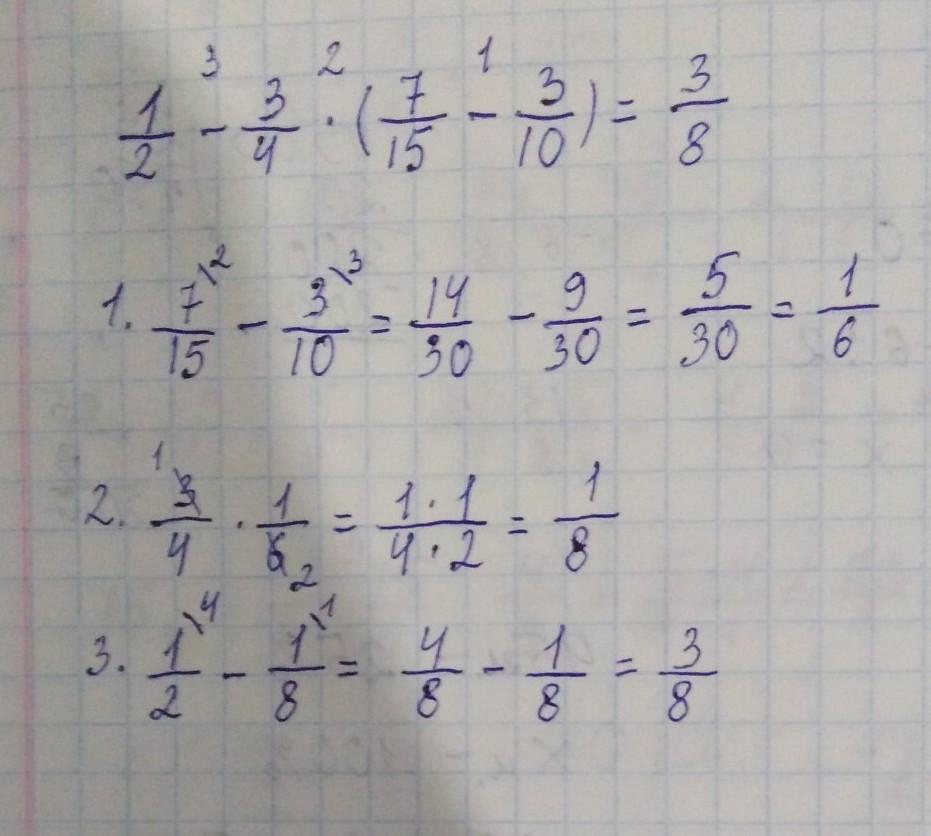 1/2 -³ 3/4 ·² (7/15 -¹ 3/10) = 3/8
1. 7\2/15 - 3\3/10 = 14/30 - 9/30 = 5/30 = 1/6
2. ¹3/4 · 1/6₂ = 1·1/4·2 = 1/8
3. 1\4/2 - 1\1/8 = 4/8 - 1/8 = 3/8